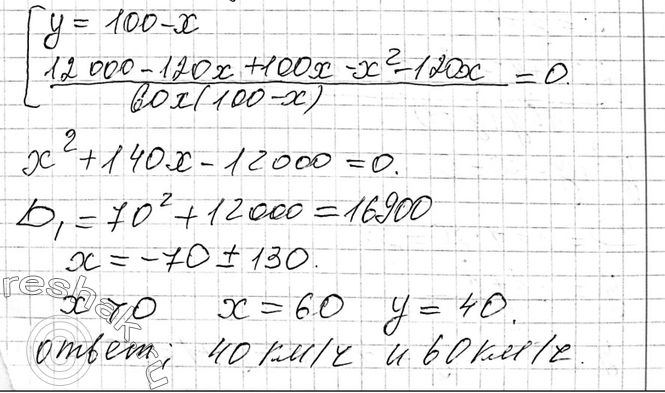 y = 100-x
12 000 - 120x + 100x - x² - 120x / 60x(100-x) = 0.
x² + 140x - 12000 = 0.
D₁ = 70² + 12000 = 16900
x = -70 ± 130.
x > 0 x = 60 y = 40.
ответ; 40 км/ч и 60 км/ч.
reshak.ru